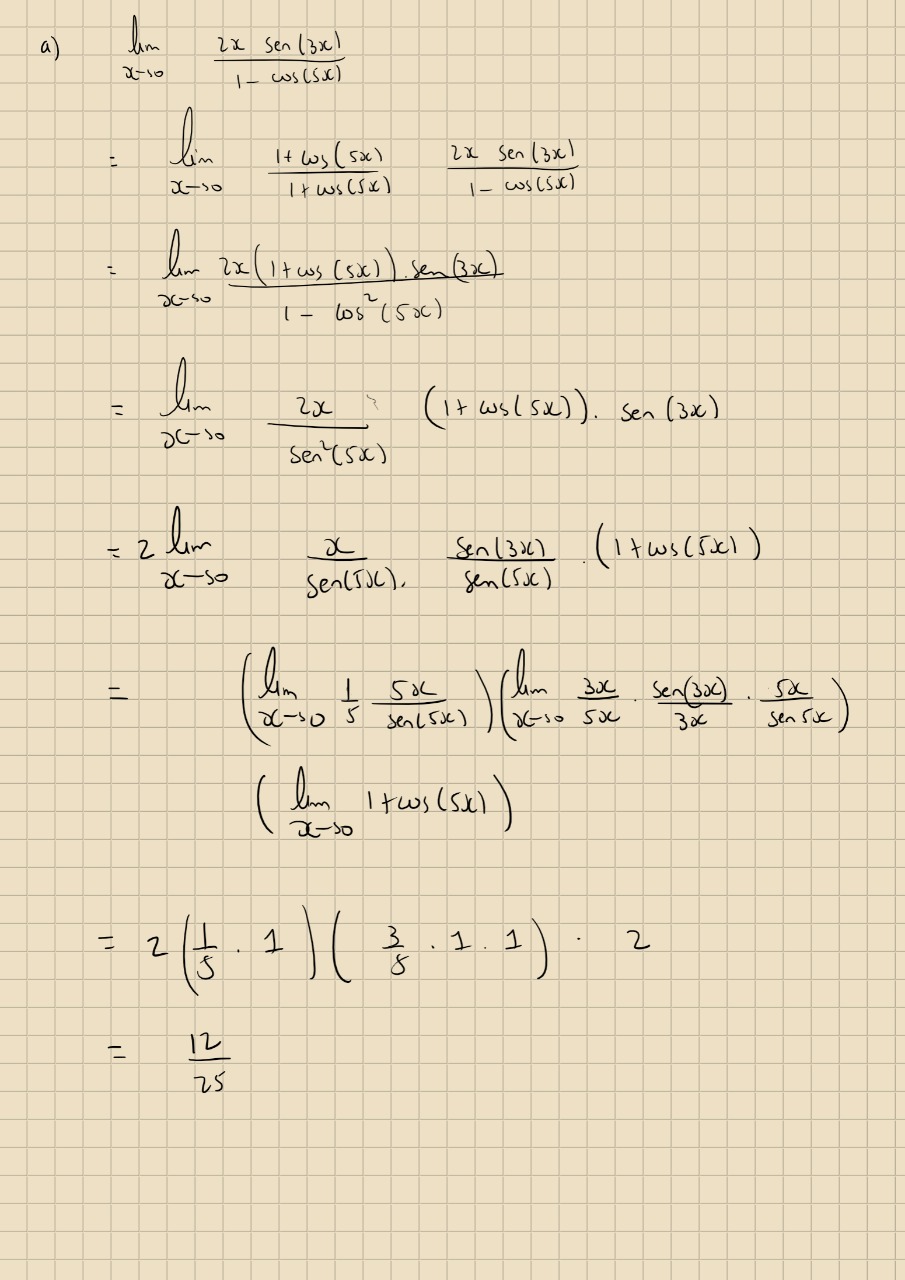 a) lim x→0 2x sen(3x) / 1 - cos(5x)
= lim x→0 1 + cos(5x) / 1 + cos(5x) 2x sen(3x) / 1 - cos(5x)
= lim x→0 2x(1 + cos(5x)) . sen(3x) / 1 - cos²(5x)
= lim x→0 2x / sen²(5x) (1 + cos(5x)) . sen(3x)
= 2 lim x→0 x / sen(5x) . sen(3x) / sen(5x) . (1 + cos(5x))
= (lim x→0 1/5 5x / sen(5x)) (lim x→0 3x / 5x . sen(3x) / 3x . 5x / sen 5x)
(lim x→0 1 + cos(5x))
= 2 (1/5 . 1) (3/5 . 1 . 1) . 2
= 12/25